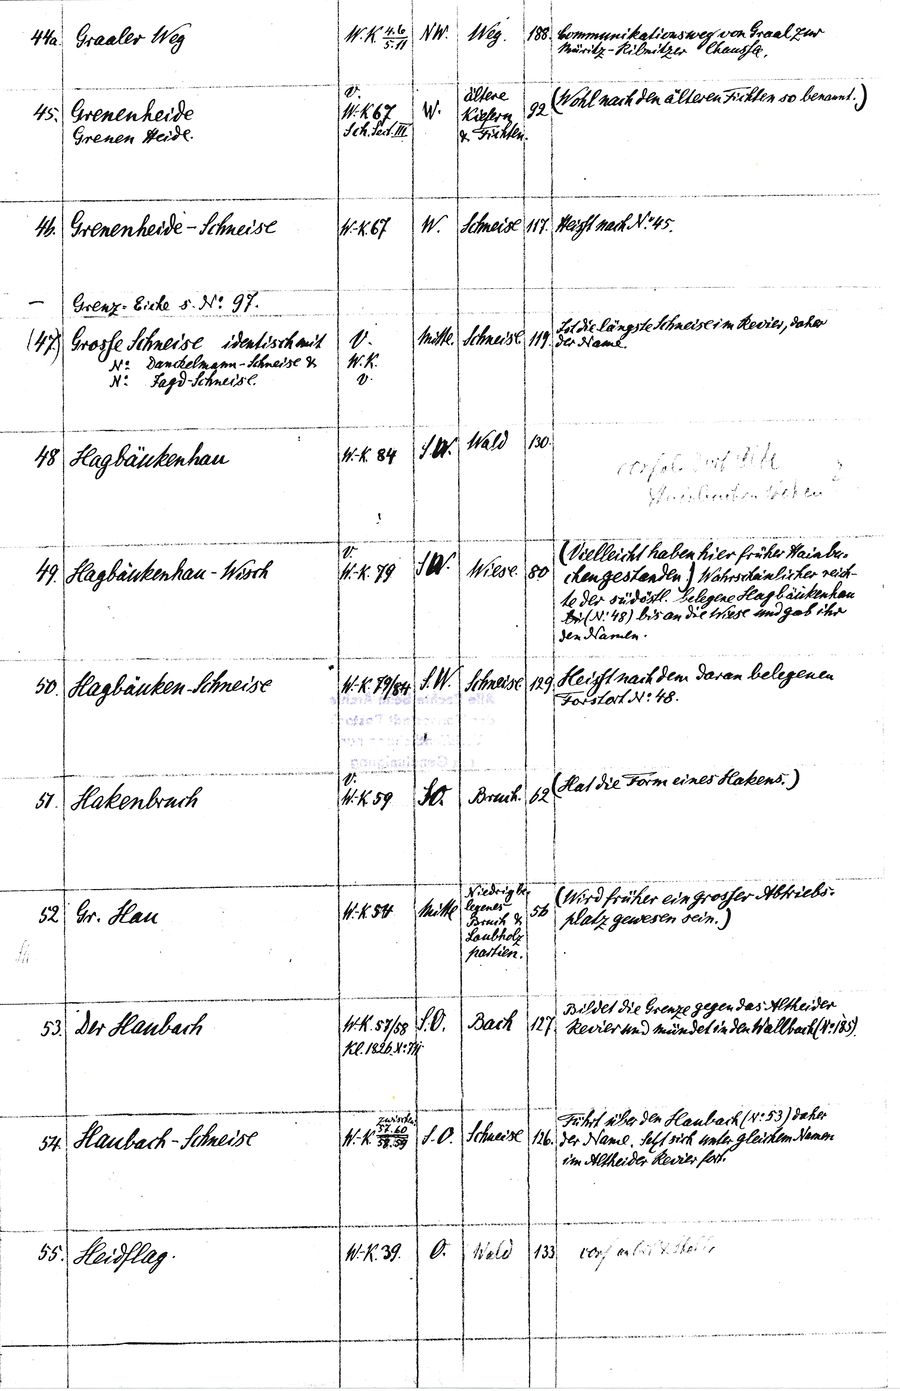 44a. Graaler Weg W.K. 4.6 / 5.11 NW. Weg. 188. Communikationsweg von Graal zur
Müritz-Ribnitzer Chaussee.
45. Grenenheide v. W.-K 67 W. ältere Kiefern 92 (Wohl nach den älteren Fichten so benannt.)
Grenen Heide. Sch. Sect. III & Fichten.
46. Grenenheide-Schneise W.-K. 67 W. Schneise 117. Heißt nach No. 45.
— Grenz-Eiche s. No. 97.
(47) Grosse Schneise identisch mit V. Mitte. Schneise 119. Ist die längste Schneise im Revier, daher
No. Danckelmann-Schneise & W.K. der Name.
No. Jagd-Schneise. v.
48 Hagbäukenhau W.-K. 84 S.W. Wald 130.
49. Hagbäukenhau-Wisch v. W.-K. 79 S.W. Wiese 80 (Vielleicht haben hier früher Hainbu-
chen gestanden.) Wahrscheinlicher reich-
te der südöstl. belegene Hagbäukenhau
(No. 48) bis an die Wiese und gab ihr
den Namen.
50. Hagbäuken-Schneise W.-K. 79/84 S.W. Schneise 129 Heißt nach dem daran belegenen
Forstort No. 48.
51. Hakenbruch v. W.-K. 59 S.O. Bruch. 62 (Hat die Form eines Hakens.)
52 Gr. Hau W.-K. 54 Mitte Niedrig be- 56 (Wird früher ein grosser Abtriebs-
legenes platz gewesen sein.)
Bruch &
Laubholz
partien.
53. Der Haubach W.-K. 57/58 S.O. Bach 127. Bildet die Grenze gegen das Altheider
Kl. 1826. No. Revier und mündet in den Wallbach (No. 185).
54. Haubach-Schneise W.-K. zwischen 57.60 / 58.59 S.O. Schneise 126. Führt über den Haubach (No. 53) daher
der Name. Setzt sich unter gleichem Namen
im Altheider Revier fort.
55. Heidflag. W.-K. 39. O. Wald 133